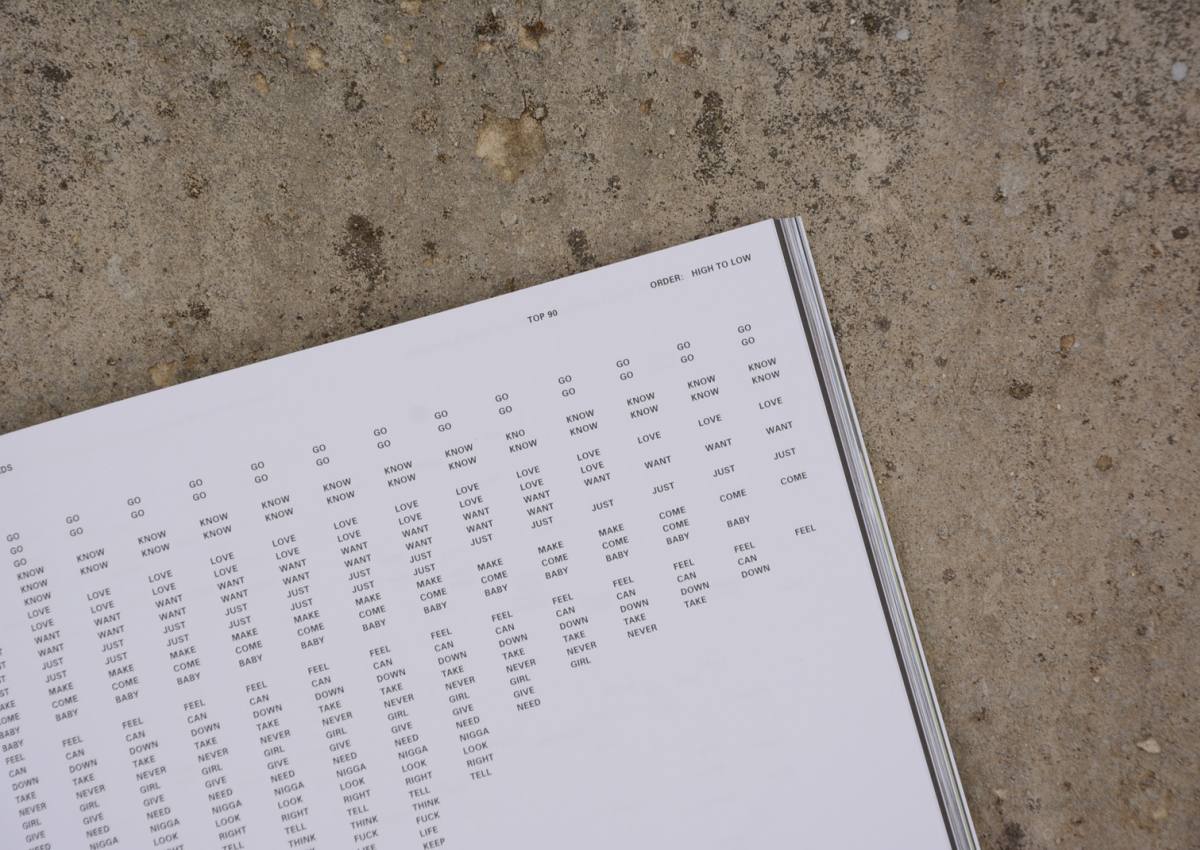 ORDER: HIGH TO LOW
TOP 90
GO GO GO GO GO GO GO GO GO GO GO GO GO
GO GO GO GO GO GO GO GO GO GO GO GO GO
GO
KNOW KNOW KNOW KNOW KNOW KNOW KNOW KNOW KNO KNOW KNOW KNOW KNOW
KNOW KNOW KNOW KNOW KNOW KNOW KNOW KNOW KNOW KNOW KNOW KNOW KNOW
KNOW
LOVE LOVE LOVE LOVE LOVE LOVE LOVE LOVE LOVE LOVE LOVE LOVE LOVE
LOVE LOVE LOVE LOVE LOVE LOVE LOVE LOVE LOVE LOVE
WANT WANT WANT WANT WANT WANT WANT WANT WANT WANT WANT WANT WANT
WANT WANT WANT WANT WANT WANT WANT WANT WANT
JUST JUST JUST JUST JUST JUST JUST JUST JUST JUST JUST JUST JUST
JUST JUST
MAKE MAKE MAKE MAKE MAKE MAKE MAKE MAKE MAKE MAKE COME COME COME
COME COME COME COME COME COME COME COME COME COME COME
BABY BABY BABY BABY BABY BABY BABY BABY BABY BABY BABY BABY BABY
BABY
FEEL FEEL FEEL FEEL FEEL FEEL FEEL FEEL FEEL FEEL FEEL FEEL FEEL FEEL
CAN CAN CAN CAN CAN CAN CAN CAN CAN CAN CAN CAN CAN
DOWN DOWN DOWN DOWN DOWN DOWN DOWN DOWN DOWN DOWN DOWN DOWN DOWN
TAKE TAKE TAKE TAKE TAKE TAKE TAKE TAKE TAKE TAKE TAKE TAKE
NEVER NEVER NEVER NEVER NEVER NEVER NEVER NEVER NEVER NEVER NEVER
GIRL GIRL GIRL GIRL GIRL GIRL GIRL GIRL GIRL GIRL
GIVE GIVE GIVE GIVE GIVE GIVE GIVE GIVE GIVE
NEED NEED NEED NEED NEED NEED NEED NEED
NIGGA NIGGA NIGGA NIGGA NIGGA NIGGA NIGGA
LOOK LOOK LOOK LOOK LOOK LOOK
RIGHT RIGHT RIGHT RIGHT RIGHT
TELL TELL TELL TELL TELL
THINK THINK THINK
FUCK FUCK
LIFE
KEEP